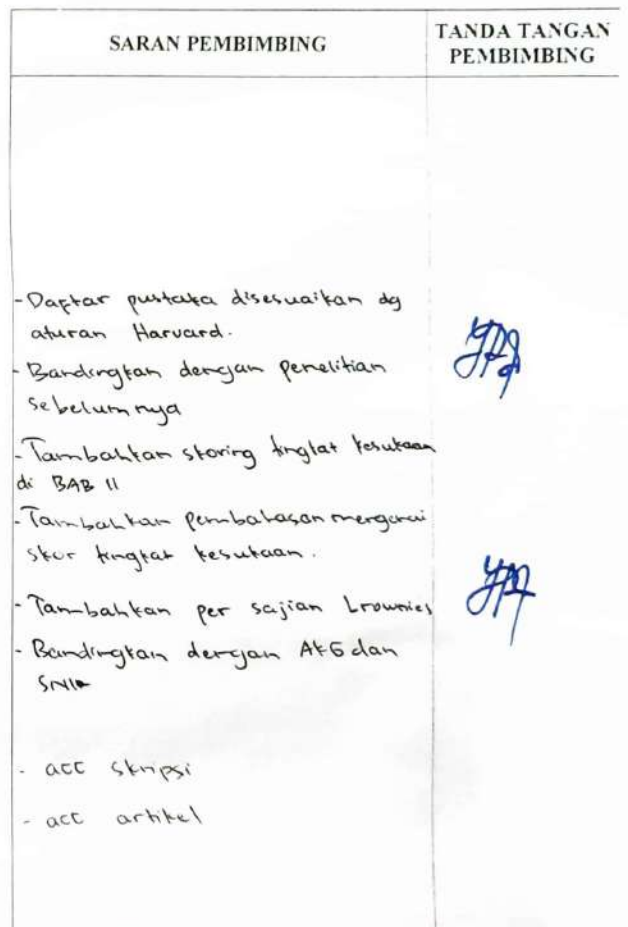 SARAN PEMBIMBING
TANDA TANGAN
PEMBIMBING
- Daftar pustaka disesuaikan dg
aturan Harvard.
- Bandingkan dengan penelitian
sebelumnya
- Tambahkan skoring tingkat kesukaan
di BAB II
- Tambahkan pembahasan mengenai
skor tingkat kesukaan.
- Tambahkan per sajian brownies
- Bandingkan dengan AKG dan
SNI
- acc skripsi
- acc artikel